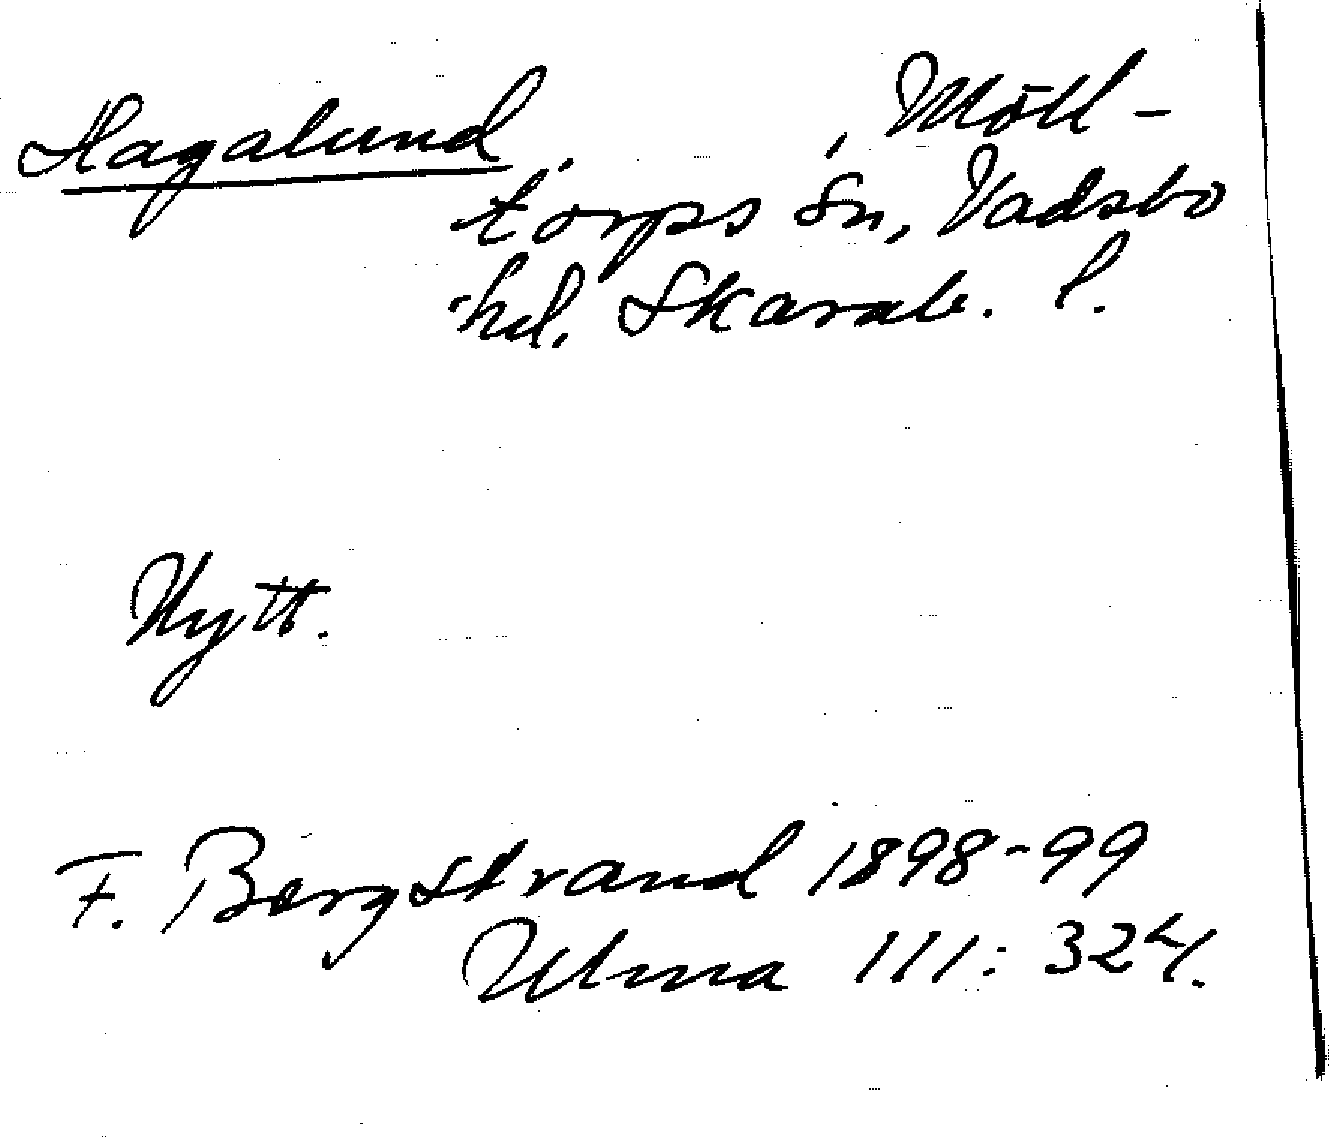 Hagalund, , Möll-
torps sn, Vadsbo
hd. Skarab. l.
Nytt.
F. Bergstrand 1898-99
Ulma 111: 324.